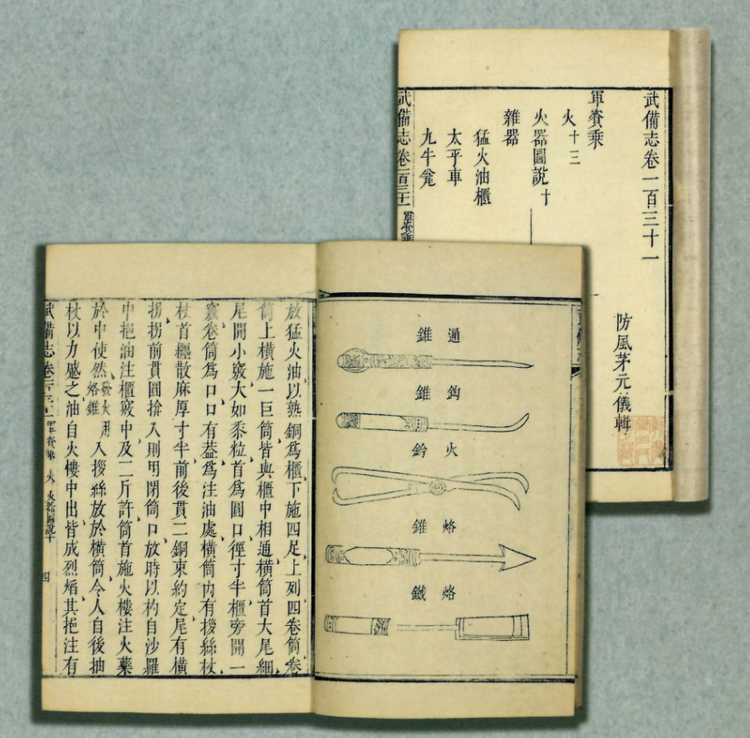 武備志卷一百三十一
防風茅元儀輯
軍資乗
火十三
火器圖說十
雜器
猛火油櫃
太平車
九牛甕
武備志卷一百三十一
通錐
鈎錐
火鈐
烙錐
烙鐵
放猛火油以熟銅爲櫃下施四足上列四卷筒卷
筒上横施一巨筒皆與櫃中相通横筒首大尾細
尾開小竅大如黍粒首爲圓口徑寸半櫃旁開一
竅卷筒爲口口有葢爲注油處横筒内有拶絲杖
杖首纏散麻厚寸半前後貫二銅束約定尾有横
拐拐前貫圓揜入則用閉筒口放時以杓自沙羅
中挹油注櫃竅中及三斤許筒首施火樓注火藥
於中使然發火用烙錐入拶絲放於横筒令人自後抽
杖以力蹙之油自火樓中出皆成烈焰其挹注有
武備志卷一百三十一 軍資乗 火 火器圖說十 四